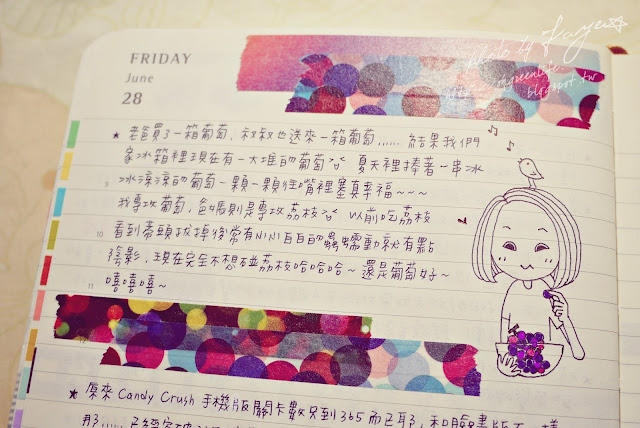 Photo by Kaye
mgreenlife.
blogspot.tw
FRIDAY
June
28
★ 老爸買了一箱葡萄，叔叔也送來一箱葡萄......結果我們
家冰箱裡現在有一大堆的葡萄 夏天裡捧著一串冰
9
冰涼涼的葡萄一顆一顆往嘴裡塞真幸福~~~
我專攻葡萄，爸媽則是專攻荔枝 以前吃荔枝
10
看到蒂頭拔掉後常有ㄋㄧㄋㄧ白白的蟲蠕動就有點
陰影，現在完全不想碰荔枝哈哈哈~還是葡萄好~
11
嘻嘻嘻~
★ 原來Candy Crush手機版關卡數只到365而已耶，和臉書版不一樣
那......已經